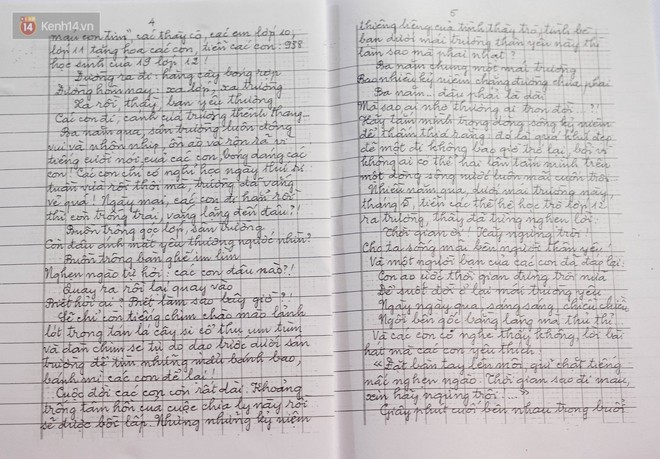 Kenh14.vn
4
màu con tim", các thầy cô, các em lớp 10,
lớp 11 tặng hoa các con, tiễn các con: 938
học sinh của 19 lớp 12!
Đường ra đi: hàng cây bóng rợp
Đường hôm nay: xa lớp, xa trường
Xa rồi thầy, bạn yêu thương
Các con đi, cánh cửa trường thênh thang...
Ba năm qua, sân trường luôn đông
vui và nhộn nhịp, ồn ào và rộn rã vì
tiếng cười nói của các con, bóng dáng các
con! Các con chỉ có nghỉ học ngày thứ bi
tuần vừa rồi thôi mà, trường đã vắng
vẻ quá! Ngày mai, các con đi hẳn rồi
thì còn trống trải, vắng lặng đến đâu?!
Buồn trông góc lớp, sân trường
Còn đâu ánh mắt yêu thương ngước nhìn?
Buồn trông bàn ghế im lìm
Nghẹn ngào tự hỏi: các con đâu nào?!
Quay ra rồi lại quay vào
Biết hỏi ai? Biết làm sao bây giờ?!
Sẽ chỉ còn tiếng chim chào mào lảnh
lót trong tán lá cây si cổ thụ um tùm
và đàn chim sẽ tự do dạo bước dưới sân
trường để tìm những mẩu bánh bao,
bánh mì các con để lại!
Cuộc đời các con còn rất dài. Khoảng
trống tâm hồn của cuộc chia ly này rồi
sẽ được bồi lấp. Nhưng những kỷ niệm
5
thiêng liêng của tình thầy trò, tình bè
bạn dưới mái trường thân yêu này thì
làm sao mà phai nhạt?
Ba năm chung một mái trường
Bao nhiêu kỷ niệm chẳng dường chia phai
Ba năm... đâu phải là dài
Mà sao ai nhớ thương ai trọn đời...?!
Hãy tắm mình trong dòng sông kỷ niệm
để thấm thía rằng: đó là quá khứ đẹp
đẽ một đi không bao giờ trở lại, bởi vì
không ai có thể hai lần tắm mình trên
một dòng sông nước luôn mải cuốn trôi
Nhiều năm qua, dưới mái trường này
tháng 5, tiễn các thế hệ học trò lớp 12
ra trường, thầy đã từng nghẹn lời:
Thời gian ơi! Hãy ngừng trôi!
Cho ta sống mãi bên người thân yêu!
Và một người bạn của các con đã đáp lại:
Con ao ước thời gian đừng trôi nữa
Để suốt đời ở lại mái trường yêu
Ngày ngày qua, sáng sáng, chiều chiều
Ngồi bên gốc bằng lăng mà thủ thỉ
Và các con có nghe thấy không, lời bài
hát mà các con yêu thích
« Đặt bàn tay lên môi, giữ chặt tiếng
nấc nghẹn ngào. Thời gian sao đi mau,
xin hãy ngừng trôi....»
Giây phút cuối bên nhau trong buổi